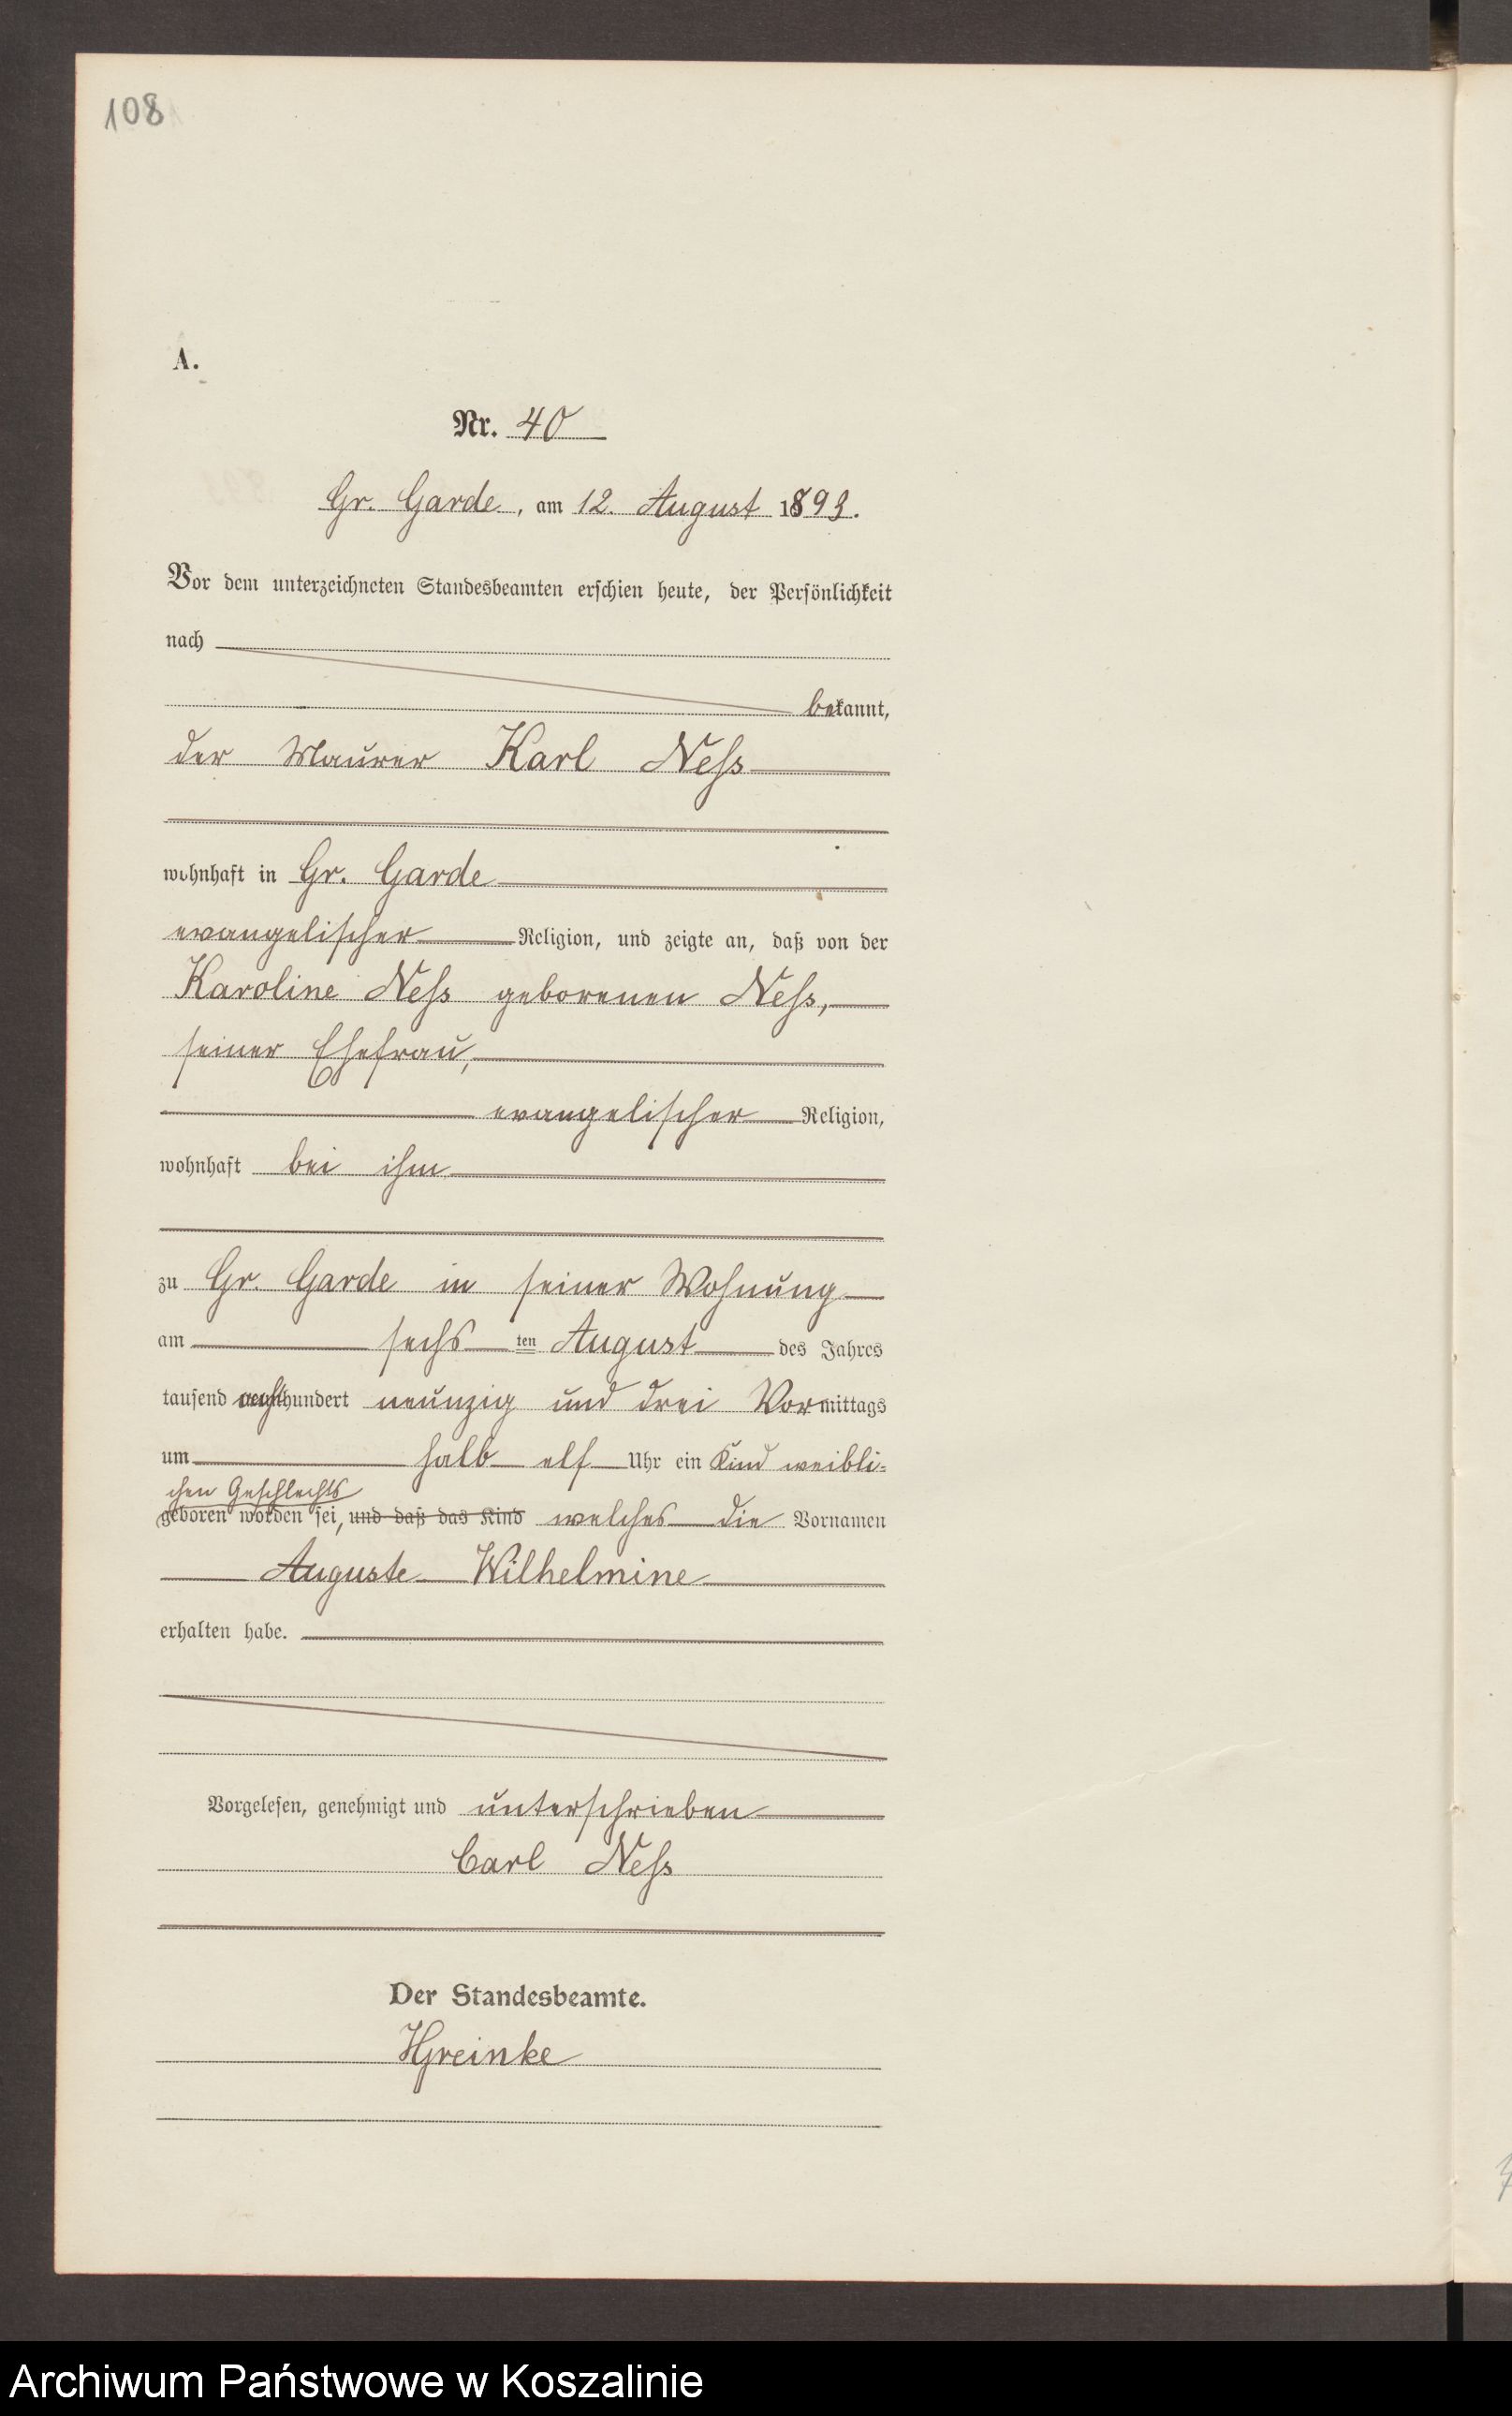 108
A.
Nr. 40
Gr. Garde, am 12. August 1893.
Vor dem unterzeichneten Standesbeamten erschien heute, der Persönlichkeit
nach
bekannt,
der Maurer Karl Neſs
wohnhaft in Gr. Garde
evangelischer Religion, und zeigte an, daß von der
Karoline Neſs geborenen Neſs,
seiner Ehefrau,
evangelischer Religion,
wohnhaft bei ihm
zu Gr. Garde in seiner Wohnung
am sechs ten August des Jahres
tausend achthundert neunzig und drei Vormittags
um halb elf Uhr ein Kind weibli-
chen Geschlechts
geboren worden sei, und daß das Kind welches die Vornamen
Auguste Wilhelmine
erhalten habe.
Vorgelesen, genehmigt und unterschrieben
Carl Neſs
Der Standesbeamte.
Archiwum Państwowe w Koszalinie